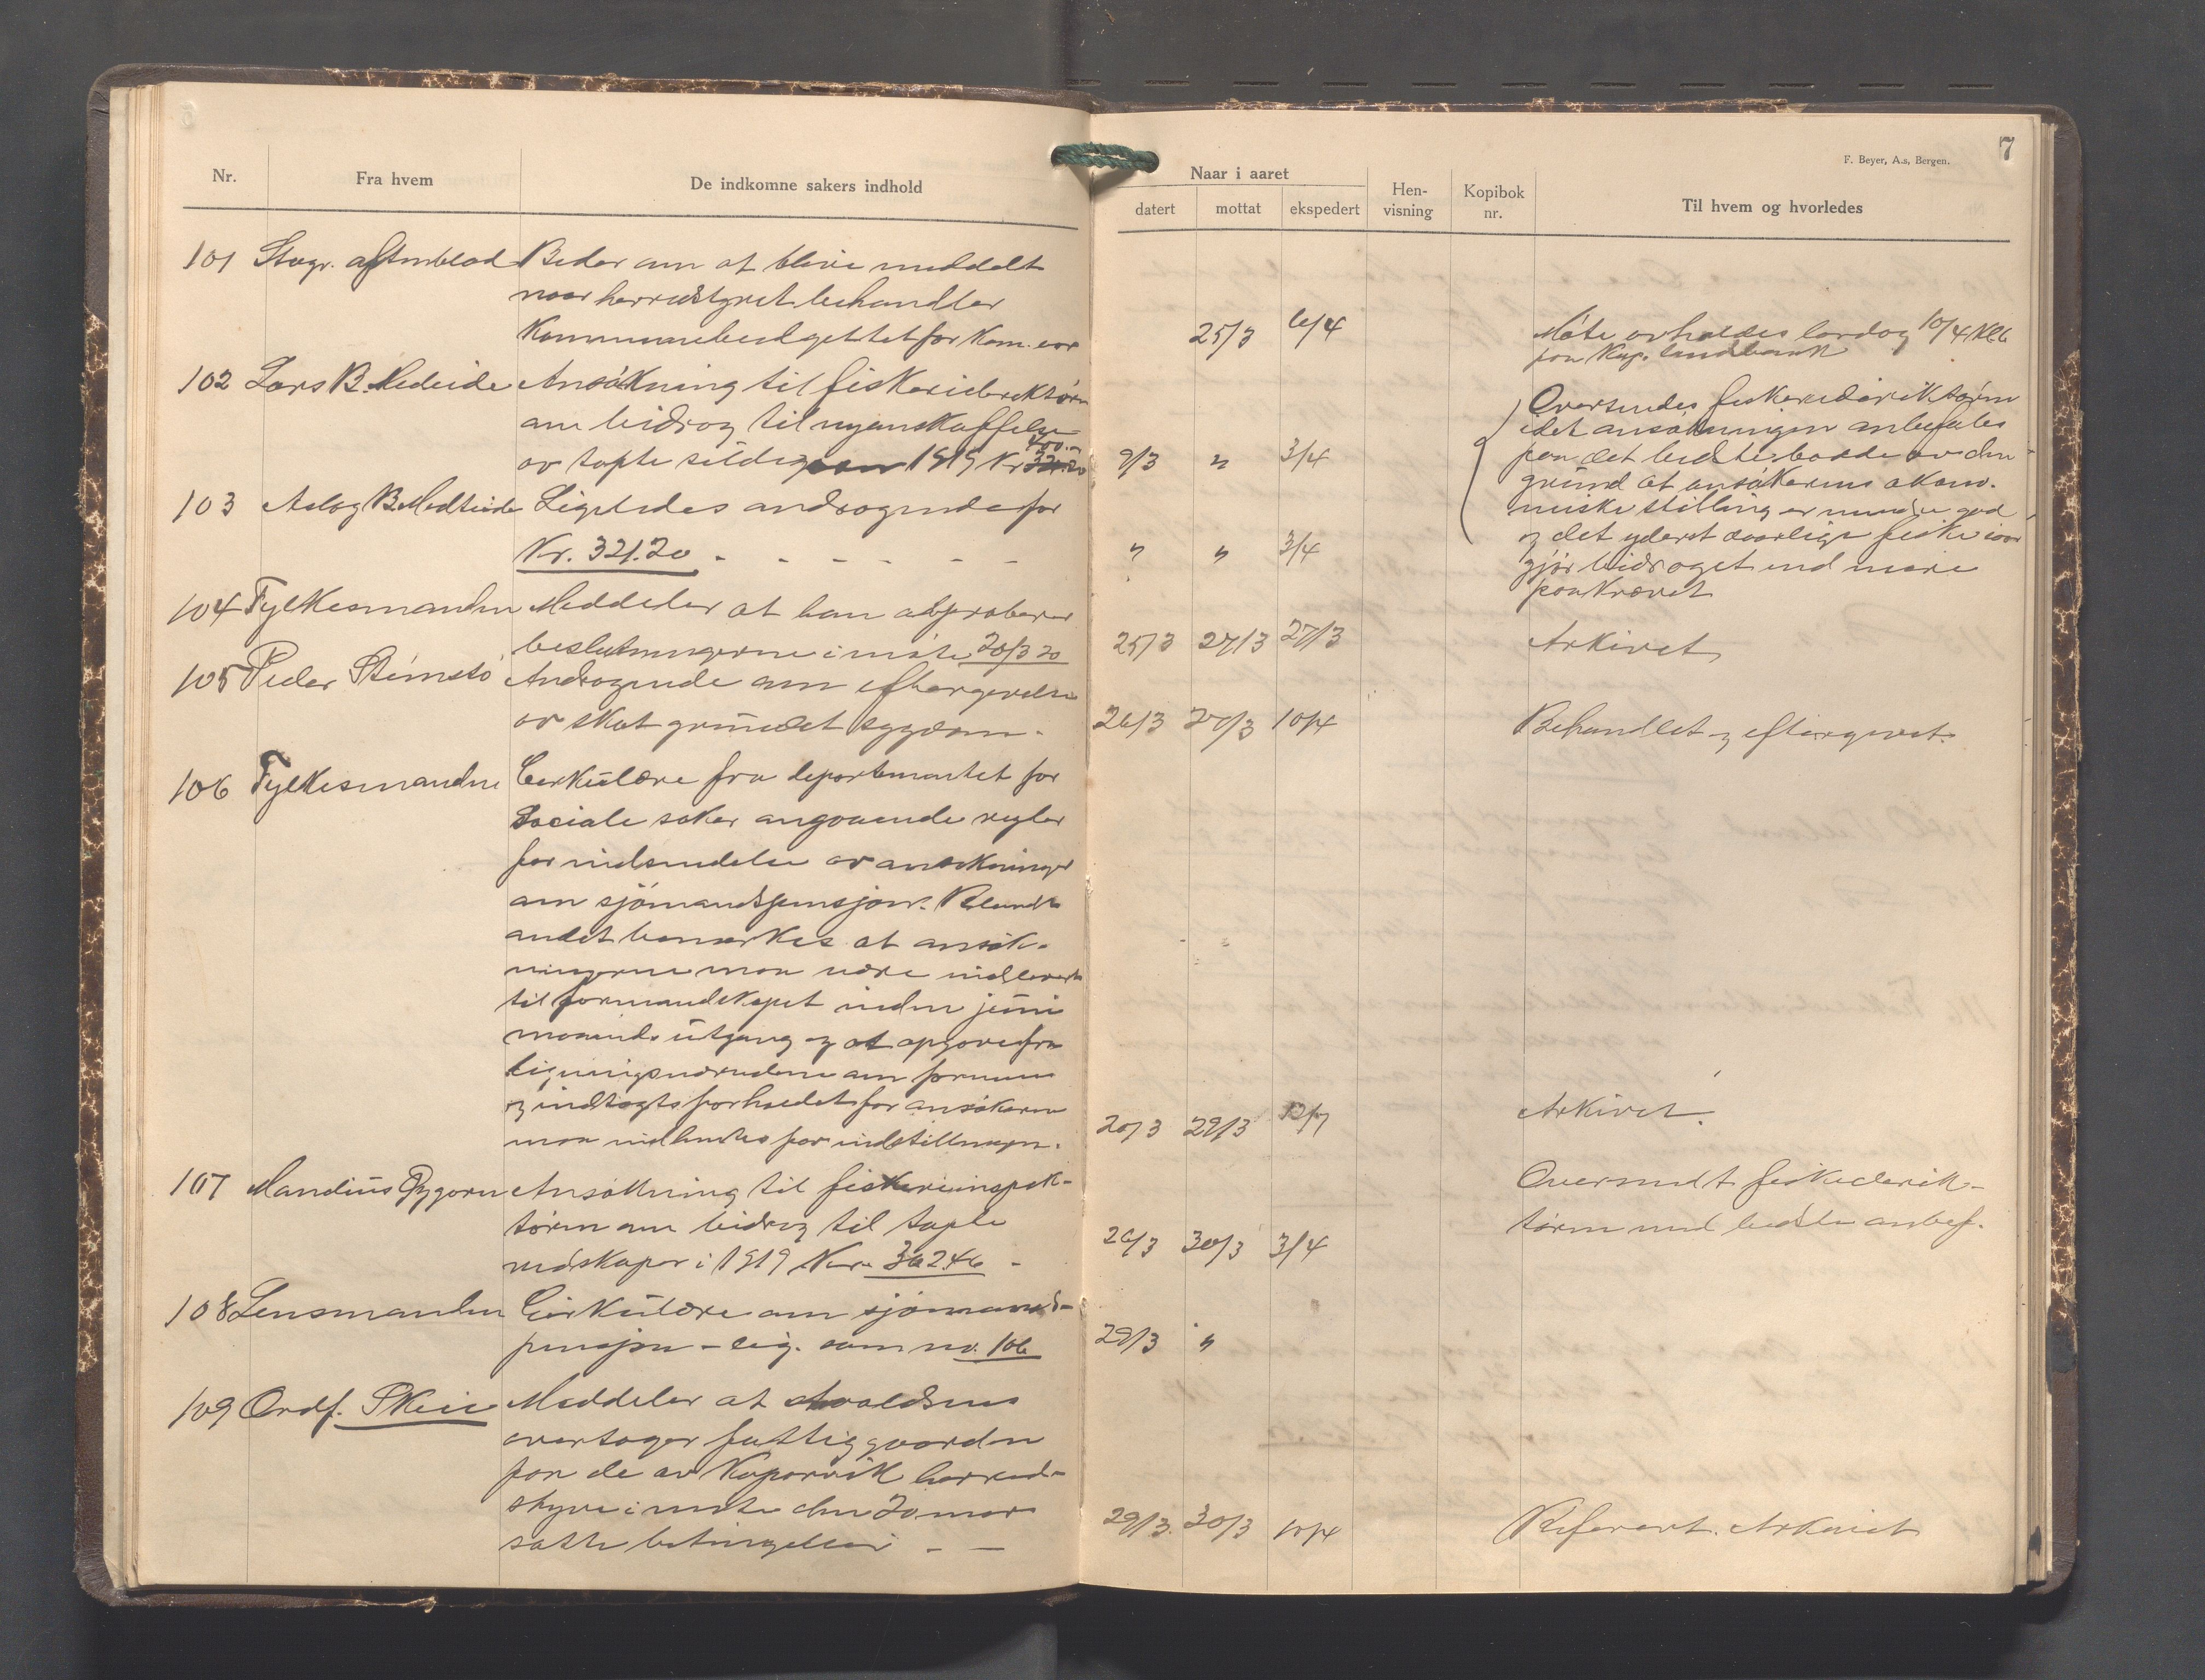 7
F. Beyer, A.s, Bergen.
Nr.
Fra hvem
De indkomne sakers indhold
Naar i aaret
datert
mottat
ekspedert
Hen-
visning
Kopibok
nr.
Til hvem og hvorledes
101 Stvgr. aftenblad Beder om at blive meddelt
naar herredstyret behandler
Kommunebudgettet for kom. aar
25/3 6/4 Møte avholdes lørdag 10/4 Kl 6
paa Kop. landbank
102 Lars B. Medeide Ansökning til fiskeridirektøren
om bidrag til nyanskaffelse
400.-
av tapte sildegarn 1919 Kr 321.20
9/3 " 3/4
Oversendes fiskeridirektøren
idet ansøkningen anbefales
paa det bedste baade av den
grund at ansøkerens økono-
miske stilling er mindre god
og det yderst daarlige fiske iaar
gjör bidraget end mere
paakrævet
103 Aslag B. Medheide Ligeledes andragende for
Kr. 321.20 - - - - - -
" " 3/4
104 Fylkesmanden Meddeler at han approberer
beslutningerne i møte 20/3 20
25/3 27/3 27/3 Arkivet
105 Peder Stemstö Andragende om eftergivelse
av skat grundet sygdom.
26/3 27/3 10/4 Behandlet og eftergivet.
106 Fylkesmanden Cirkulære fra departementet for
Sociale saker angaaende regler
for indsendelse av ansøkninger
om sjömandspensjon. Blandt
andet bemerkes at ansøk-
ningerne maa være indlevert
til formandskapet inden juni
maaneds utgang og at opgave fra
ligningsvæsendene om formues
og indtægtsforholdet for ansøkeren
maa indhentes før indstillingen.
20/3 29/3 12/7 Arkivet.
107 Mandius Pygorn Ansökning til fiskeriinspek-
tøren om bidrag til tapte
redskaper i 1919 Kr. 362.46 -
26/3 30/3 3/4 Oversendt fiskedirek-
tøren med bedste anbef.
108 Lensmanden Cirkulære om sjömands-
pensjon - lig. som nr. 106
29/3 "
109 Ordf. Skeie Meddeler at Avaldsnes
overtager fattiggaarden
paa de av Kopervik herred-
styre i møte den 20 mars
satte betingelser - -
29/3. 30/3 10/4 Referert. Arkivet